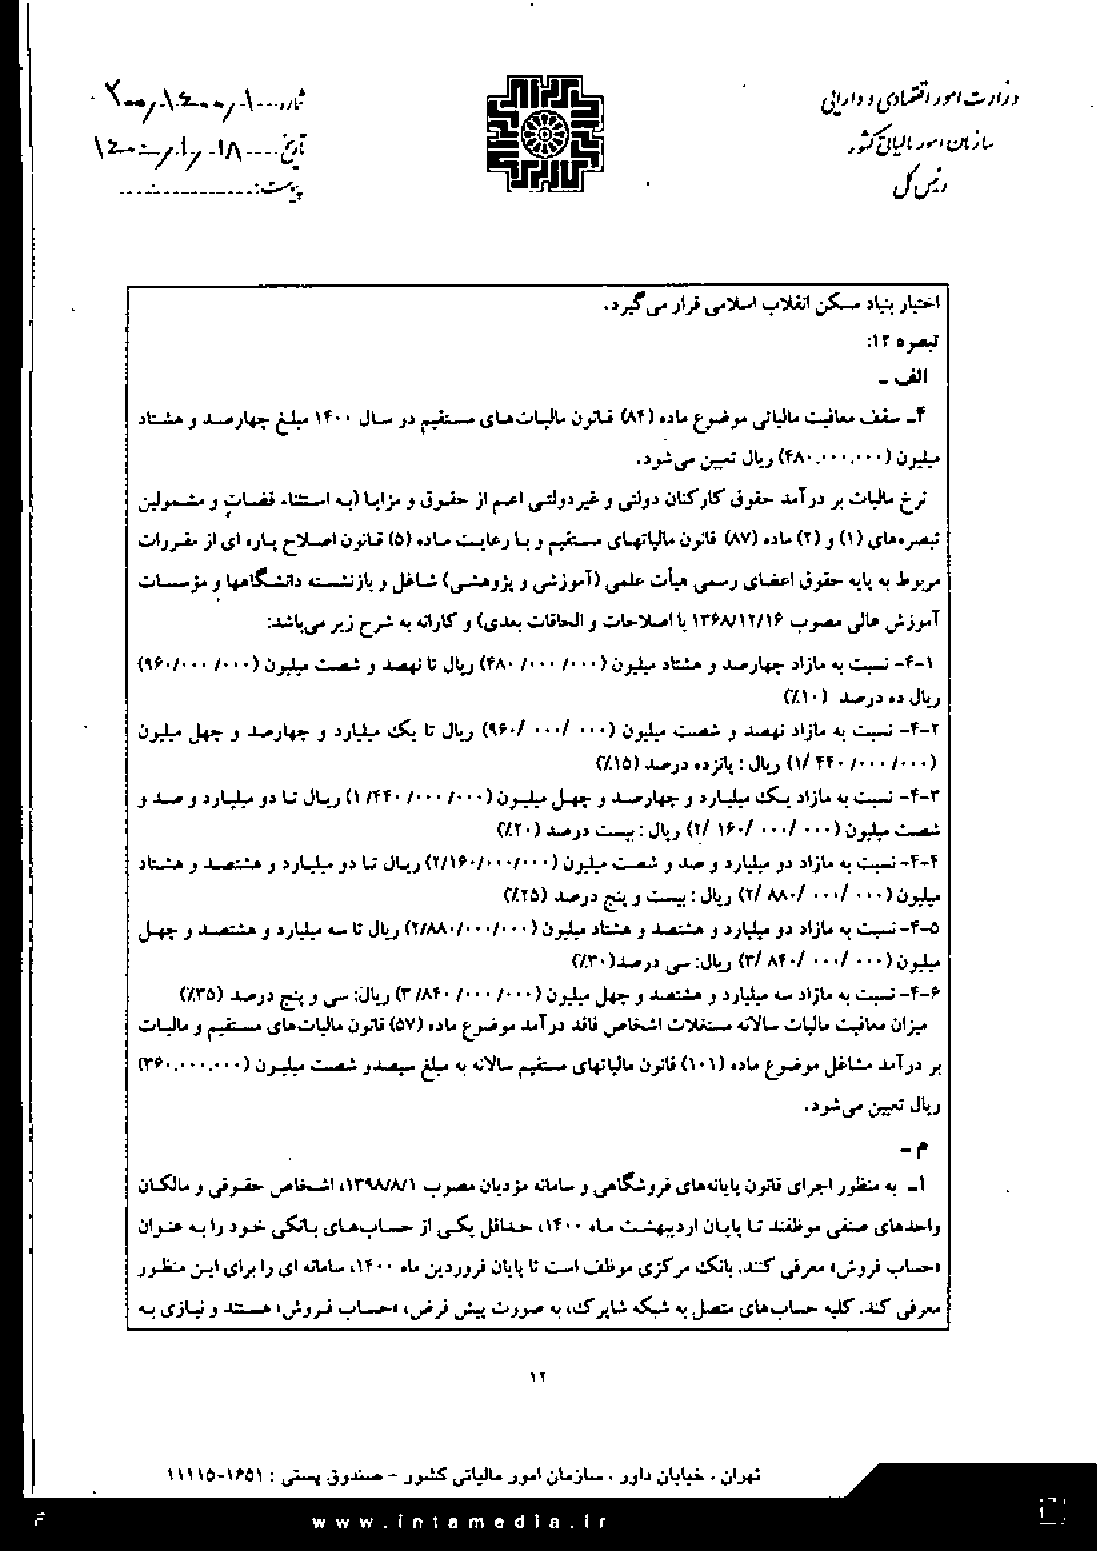 وزارت امور اقتصادی و دارایی
سازمان امور مالیاتی کشور
رئیس کل
شماره: ۲۰۰/۱۴۰۰/۱۰
تاریخ: ۱۴۰۰/۰۱/۱۸
پیوست:
اختیار بنیاد مسکن انقلاب اسلامی قرار می‌گیرد.
تبصره ۱۲:
الف -
۴- سقف معافیت مالیاتی موضوع ماده (۸۴) قانون مالیات‌های مستقیم دو سال ۱۴۰۰ مبلغ چهارصد و هشتاد
میلیون (۴۸۰.۰۰۰.۰۰۰) ریال تعیین می‌شود.
نرخ مالیات بر درآمد حقوق کارکنان دولتی و غیردولتی اعم از حقوق و مزایا (به استثناء قضات و مشمولین
تبصره‌های (۱) و (۲) ماده (۸۷) قانون مالیاتهای مستقیم و با رعایت ماده (۵) قانون اصلاح پاره ای از مقررات
مربوط به پایه حقوق اعضای رسمی هیأت علمی (آموزشی و پژوهشی) شاغل و بازنشسته دانشگاهها و مؤسسات
آموزش عالی مصوب ۱۳۶۸/۱۲/۱۶ با اصلاحات و الحاقات بعدی) و کارانه به شرح زیر می‌باشد:
۴-۱- نسبت به مازاد چهارصد و هشتاد میلیون (۴۸۰/۰۰۰/۰۰۰) ریال تا نهصد و شصت میلیون (۹۶۰/۰۰۰/۰۰۰)
ریال ده درصد (۱۰٪)
۴-۲- نسبت به مازاد نهصد و شصت میلیون (۹۶۰/۰۰۰/۰۰۰) ریال تا یک میلیارد و چهارصد و چهل میلیون
(۱/۴۴۰/۰۰۰/۰۰۰) ریال: پانزده درصد (۱۵٪)
۴-۳- نسبت به مازاد یک میلیارد و چهارصد و چهل میلیون (۱/۴۴۰/۰۰۰/۰۰۰) ریال تا دو میلیارد و صد و
شصت میلیون (۲/۱۶۰/۰۰۰/۰۰۰) ریال: بیست درصد (۲۰٪)
۴-۴- نسبت به مازاد دو میلیارد و صد و شصت میلیون (۲/۱۶۰/۰۰۰/۰۰۰) ریال تا دو میلیارد و هشتصد و هشتاد
میلیون (۲/۸۸۰/۰۰۰/۰۰۰) ریال: بیست و پنج درصد (۲۵٪)
۴-۵- نسبت به مازاد دو میلیارد و هشتصد و هشتاد میلیون (۲/۸۸۰/۰۰۰/۰۰۰) ریال تا سه میلیارد و هشتصد و چهل
میلیون (۳/۸۴۰/۰۰۰/۰۰۰) ریال: سی درصد(۳۰٪)
۴-۶- نسبت به مازاد سه میلیارد و هشتصد و چهل میلیون (۳/۸۴۰/۰۰۰/۰۰۰) ریال: سی و پنج درصد (۳۵٪)
میزان معافیت مالیات سالانه مستغلات اشخاص فاقد درآمد موضوع ماده (۵۷) قانون مالیات‌های مستقیم و مالیات
بر درآمد مشاغل موضوع ماده (۱۰۱) قانون مالیاتهای مستقیم سالانه به مبلغ سیصدو شصت میلیون (۳۶۰.۰۰۰.۰۰۰)
ریال تعیین می‌شود.
م -
۱- به منظور اجرای قانون پایانه‌های فروشگاهی و سامانه مؤدیان مصوب ۱۳۹۸/۸/۱، اشخاص حقوقی و مالکان
واحدهای صنفی موظفند تا پایان اردیبهشت ماه ۱۴۰۰، حداقل یکی از حساب‌های بانکی خود را به عنوان
«حساب فروش» معرفی کنند. بانک مرکزی موظف است تا پایان فروردین ماه ۱۴۰۰، سامانه ای را برای این منظور
معرفی کند. کلیه حساب‌های متصل به شبکه شاپرک، به صورت پیش فرض، «حساب فروش» هستند و نیازی به
۱۲
تهران ، خیابان داور ، سازمان امور مالیاتی کشور - صندوق پستی : ۱۶۵۱-۱۱۱۱۵
www.intamedia.ir